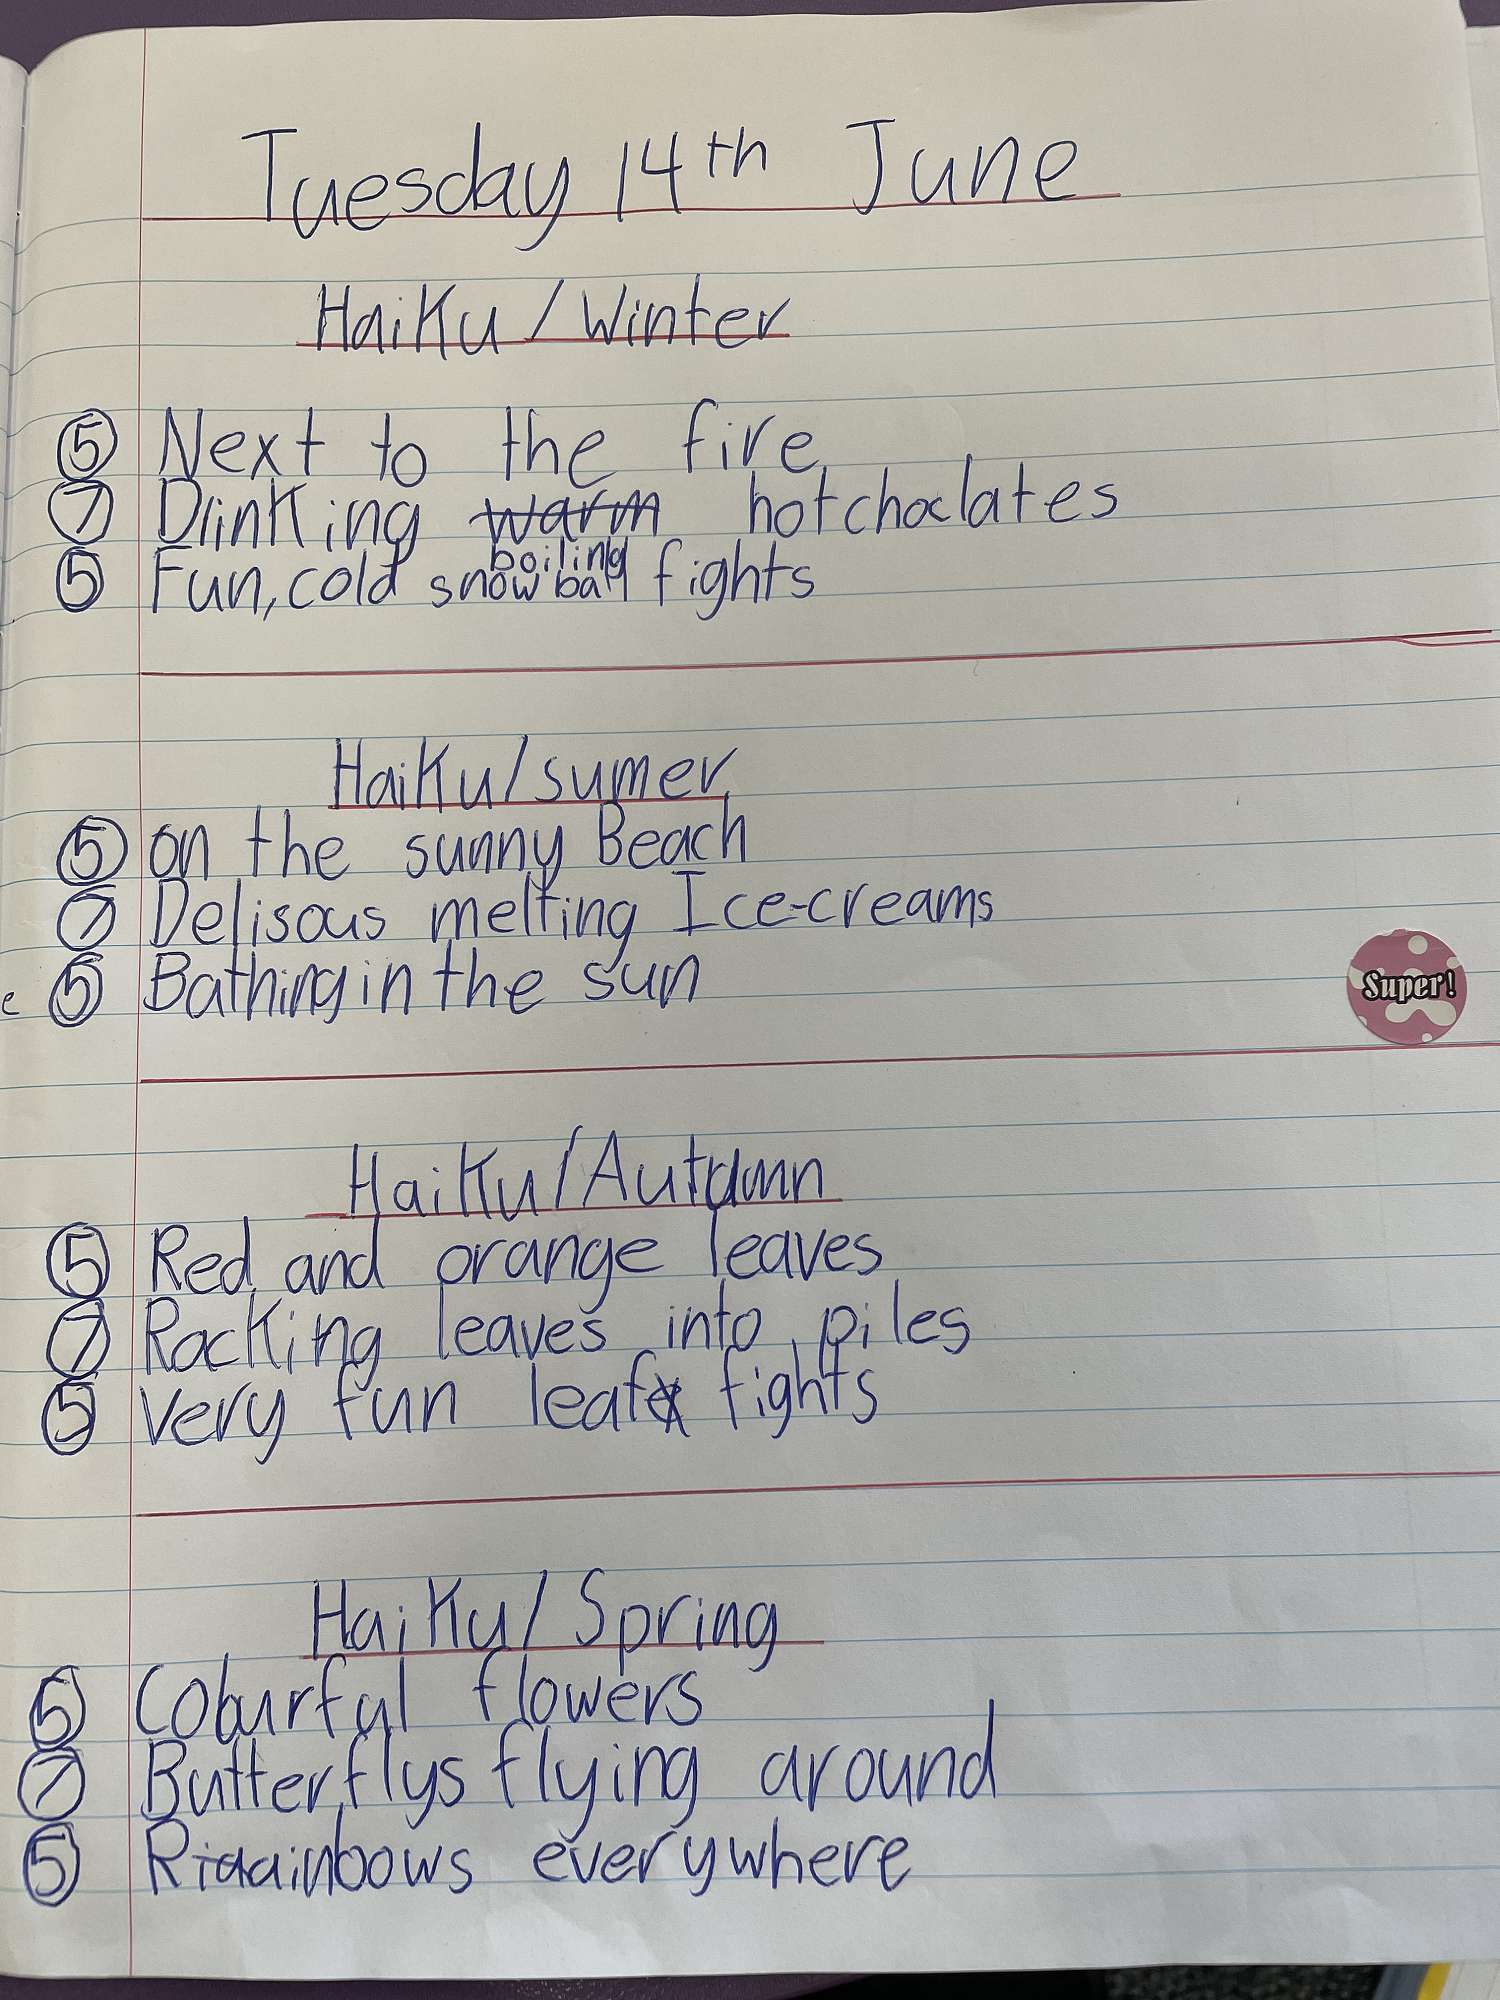 Tuesday 14th June
Haiku/Winter
5 Next to the fire
7 Drinking warm hotchoclates
boiling
5 Fun, cold snowball fights
Haiku/sumer
5 on the sunny Beach
7 Delisous melting Ice-creams
e 5 Bathing in the sun
Super!
Haiku/Autumn
5 Red and orange leaves
7 Racking leaves into piles
5 very fun leaf fights
Haiku/Spring
5 Colourful flowers
7 Butterflys flying around
5 Riaainbows everywhere